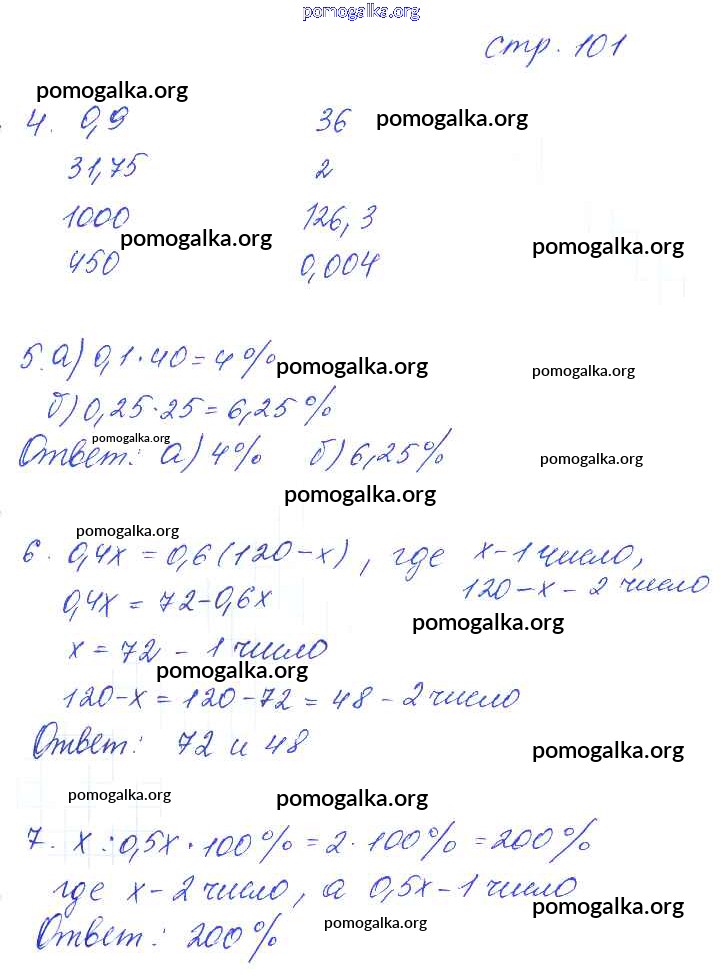 pomogalka.org
стр. 101
pomogalka.org
4. 0,9 36 pomogalka.org
31,75 2
1000 126,3
pomogalka.org pomogalka.org
450 0,004
5. а) 0,1 · 40 = 4 % pomogalka.org pomogalka.org
б) 0,25 · 25 = 6,25 %
pomogalka.org
Ответ: а) 4% б) 6,25% pomogalka.org
pomogalka.org
pomogalka.org
6. 0,4х = 0,6 (120 – х), где х – 1 число,
120 – х – 2 число
0,4х = 72 – 0,6х
pomogalka.org
х = 72 – 1 число
pomogalka.org
120 – х = 120 – 72 = 48 – 2 число
Ответ: 72 и 48 pomogalka.org
pomogalka.org pomogalka.org
7. х : 0,5х · 100 % = 2 · 100 % = 200 %
где х – 2 число, а 0,5х – 1 число
pomogalka.org
pomogalka.org
Ответ: 200 %